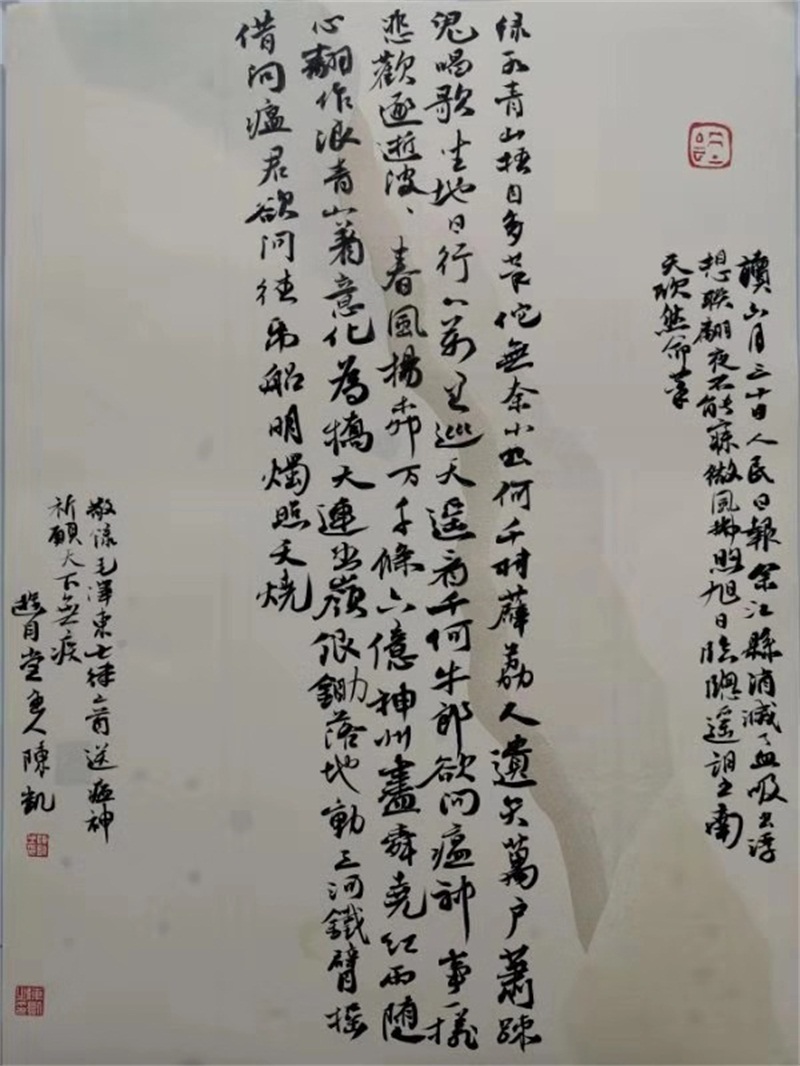 讀六月三十日人民日報余江縣消滅了血吸虫浮
想聯翩夜不能寐微風拂煦旭日臨窗遥望南
天欣然命筆
绿水青山枉自多華佗無奈小虫何千村薜荔人遺矢萬户蕭疎
鬼唱歌坐地日行八萬里巡天遥看千河牛郎欲问瘟神事一樣
悲歡逐逝波、春風楊柳万千條六億神州盡舜堯红雨随
心翻作浪青山着意化為橋天連五嶺银鋤落地動三河鐵臂摇
借问瘟君欲何往纸船明燭照天燒
敬録毛澤東七律二首送瘟神
祈願天下無疾
遊目堂主人陳凱